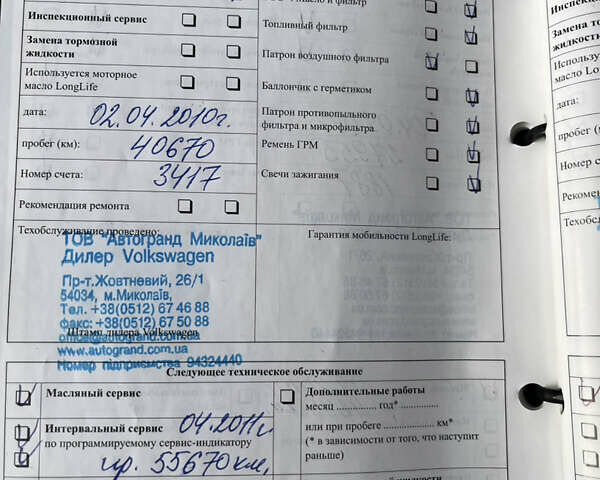 масло и фильтр
Инспекционный сервис
Топливный фильтр
Замена тормозной
жидкости
Патрон воздушного фильтра
Используется моторное
масло LongLife
Баллончик с герметиком
дата: 02.04.2010г.
Патрон противопыльного
фильтра и микрофильтра
пробег (км): 40670
Ремень ГРМ
Номер счета: 3417
Свечи зажигания
Рекомендация ремонта
Техобслуживание проведено:
Гарантия мобильности LongLife:
ТОВ "Автогранд Миколаїв"
Дилер Volkswagen
Пр-т.Жовтневий, 26/1
54034, м.Миколаїв,
Тел. +38(0512) 67 46 88
факс: +38(0512) 67 50 88
Штамп дилера Volkswagen
office@autogrand.com.ua
www.autogrand.com.ua
Номер підприємства 94324440
Следующее техническое обслуживание
Масляный сервис
Дополнительные работы
месяц .............. год* ..............
Интервальный сервис 04.2011г.
или при пробеге .............. км*
по программируемому сервис-индикатору
(* в зависимости от того, что наступит
раньше)
пр. 55670 км,
Инспекционн
Замена то
жидкости
Используе
масло Lon
дата:
пробег (км)
Номер сче
Рекомен
Техобсл